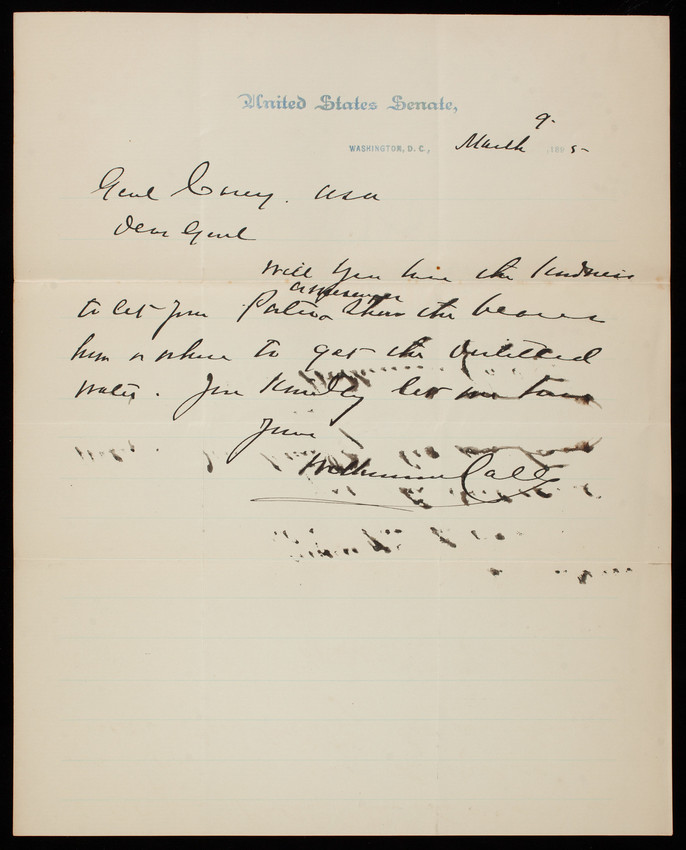 United States Senate,
WASHINGTON, D. C., March 9. 1885-
Genl Casey. USA
Dear Genl
Will you have the kindness
to let your Porter or messenger show the bearer
how or where to get the distilled
water. You kindly let me have
Yours
Wilkinson Call